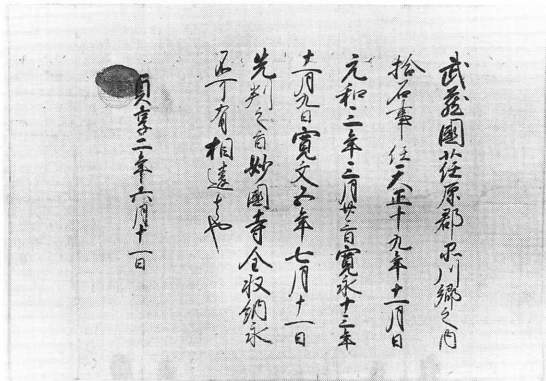 武蔵國荏原郡品川郷之内
拾石事任天正十九年十一月日
元和三年二月廿八日寛永十三年
十一月九日寛文五年七月十一日
先判之旨妙國寺全収納永
不可有相違者也
貞享二年六月十一日